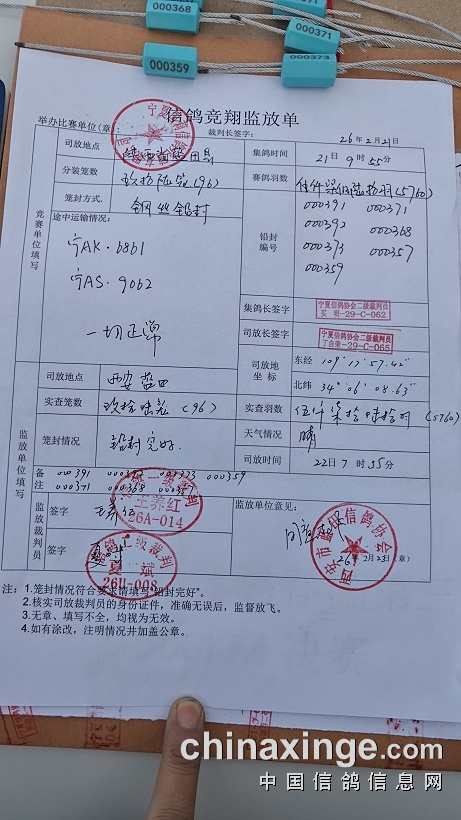 000368
000371
000359
000373
信鸽竞翔监放单
举办比赛单位(章):
裁判长签字:
26年2月21日
竞赛单位填写
司放地点
陕西省蓝田县
集鸽时间
21日9时55分
分装笼数
玖拾陆笼(96)
赛鸽羽数
(5760)
笼封方式
钢丝铅封
铅封编号
000391 000371
000392 000368
000373 000357
000359
途中运输情况:
宁AK·6861
宁AS·9062
一切正常
集鸽长签字
宁夏信鸽协会二级裁判员
明-29-C-062
司放长签字
宁夏信鸽协会二级裁判员
丁自荣-29-C-065
司放地坐标
东经 109°17′57.42″
北纬 34°06′08.63″
监放单位填写
司放地点
西安蓝田
实查笼数
玖拾陆笼(96)
实查羽数
伍仟柒拾陆拾羽(5760)
笼封情况
铅封完好.
天气情况
晴
司放时间
22日7时55分
备注
000391 000373 000359
000371 000368 000357
监放裁判员
签字
王养红
26A-014
签字
二级裁判
26U-008
监放单位意见:
西安市信鸽协会
26年2月23日(章)
注: 1.笼封情况符合要求请填写"铅封完好"。
2.核实司放裁判员的身份证件,准确无误后,监督放飞。
3.无章、填写不全,均视为无效。
4.如有涂改,注明情况并加盖公章。
chinaxinge.com
中国信鸽信息网